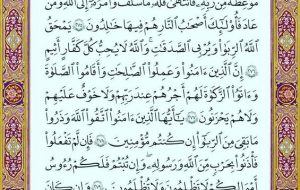 مَوْعِظَةٌ مِّن رَّبِّهِۦ فَٱنتَهَىٰ فَلَهُۥ مَا سَلَفَ وَأَمْرُهُۥٓ إِلَى ٱللَّهِ وَمَنْ
عَادَ فَأُو۟لَٰٓئِكَ أَصْحَٰبُ ٱلنَّارِ هُمْ فِيهَا خَٰلِدُونَ ۝ يَمْحَقُ
ٱللَّهُ ٱلرِّبَوٰا۟ وَيُرْبِى ٱلصَّدَقَٰتِ وَٱللَّهُ لَا يُحِبُّ كُلَّ كَفَّارٍ أَثِيمٍ
۝ إِنَّ ٱلَّذِينَ ءَامَنُوا۟ وَعَمِلُوا۟ ٱلصَّٰلِحَٰتِ وَأَقَامُوا۟ ٱلصَّلَوٰةَ
وَءَاتَوُا۟ ٱلزَّكَوٰةَ لَهُمْ أَجْرُهُمْ عِندَ رَبِّهِمْ وَلَا خَوْفٌ عَلَيْهِمْ
وَلَا هُمْ يَحْزَنُونَ ۝ يَٰٓأَيُّهَا ٱلَّذِينَ ءَامَنُوا۟ ٱتَّقُوا۟ ٱللَّهَ وَذَرُوا۟
مَا بَقِىَ مِنَ ٱلرِّبَوٰٓا۟ إِن كُنتُم مُّؤْمِنِينَ ۝ فَإِن لَّمْ تَفْعَلُوا۟
فَأْذَنُوا۟ بِحَرْبٍ مِّنَ ٱللَّهِ وَرَسُولِهِۦ وَإِن تُبْتُمْ فَلَكُمْ رُءُوسُ
أَمْوَٰلِكُمْ لَا تَظْلِمُونَ وَلَا تُظْلَمُونَ ۝ وَإِن كَانَ